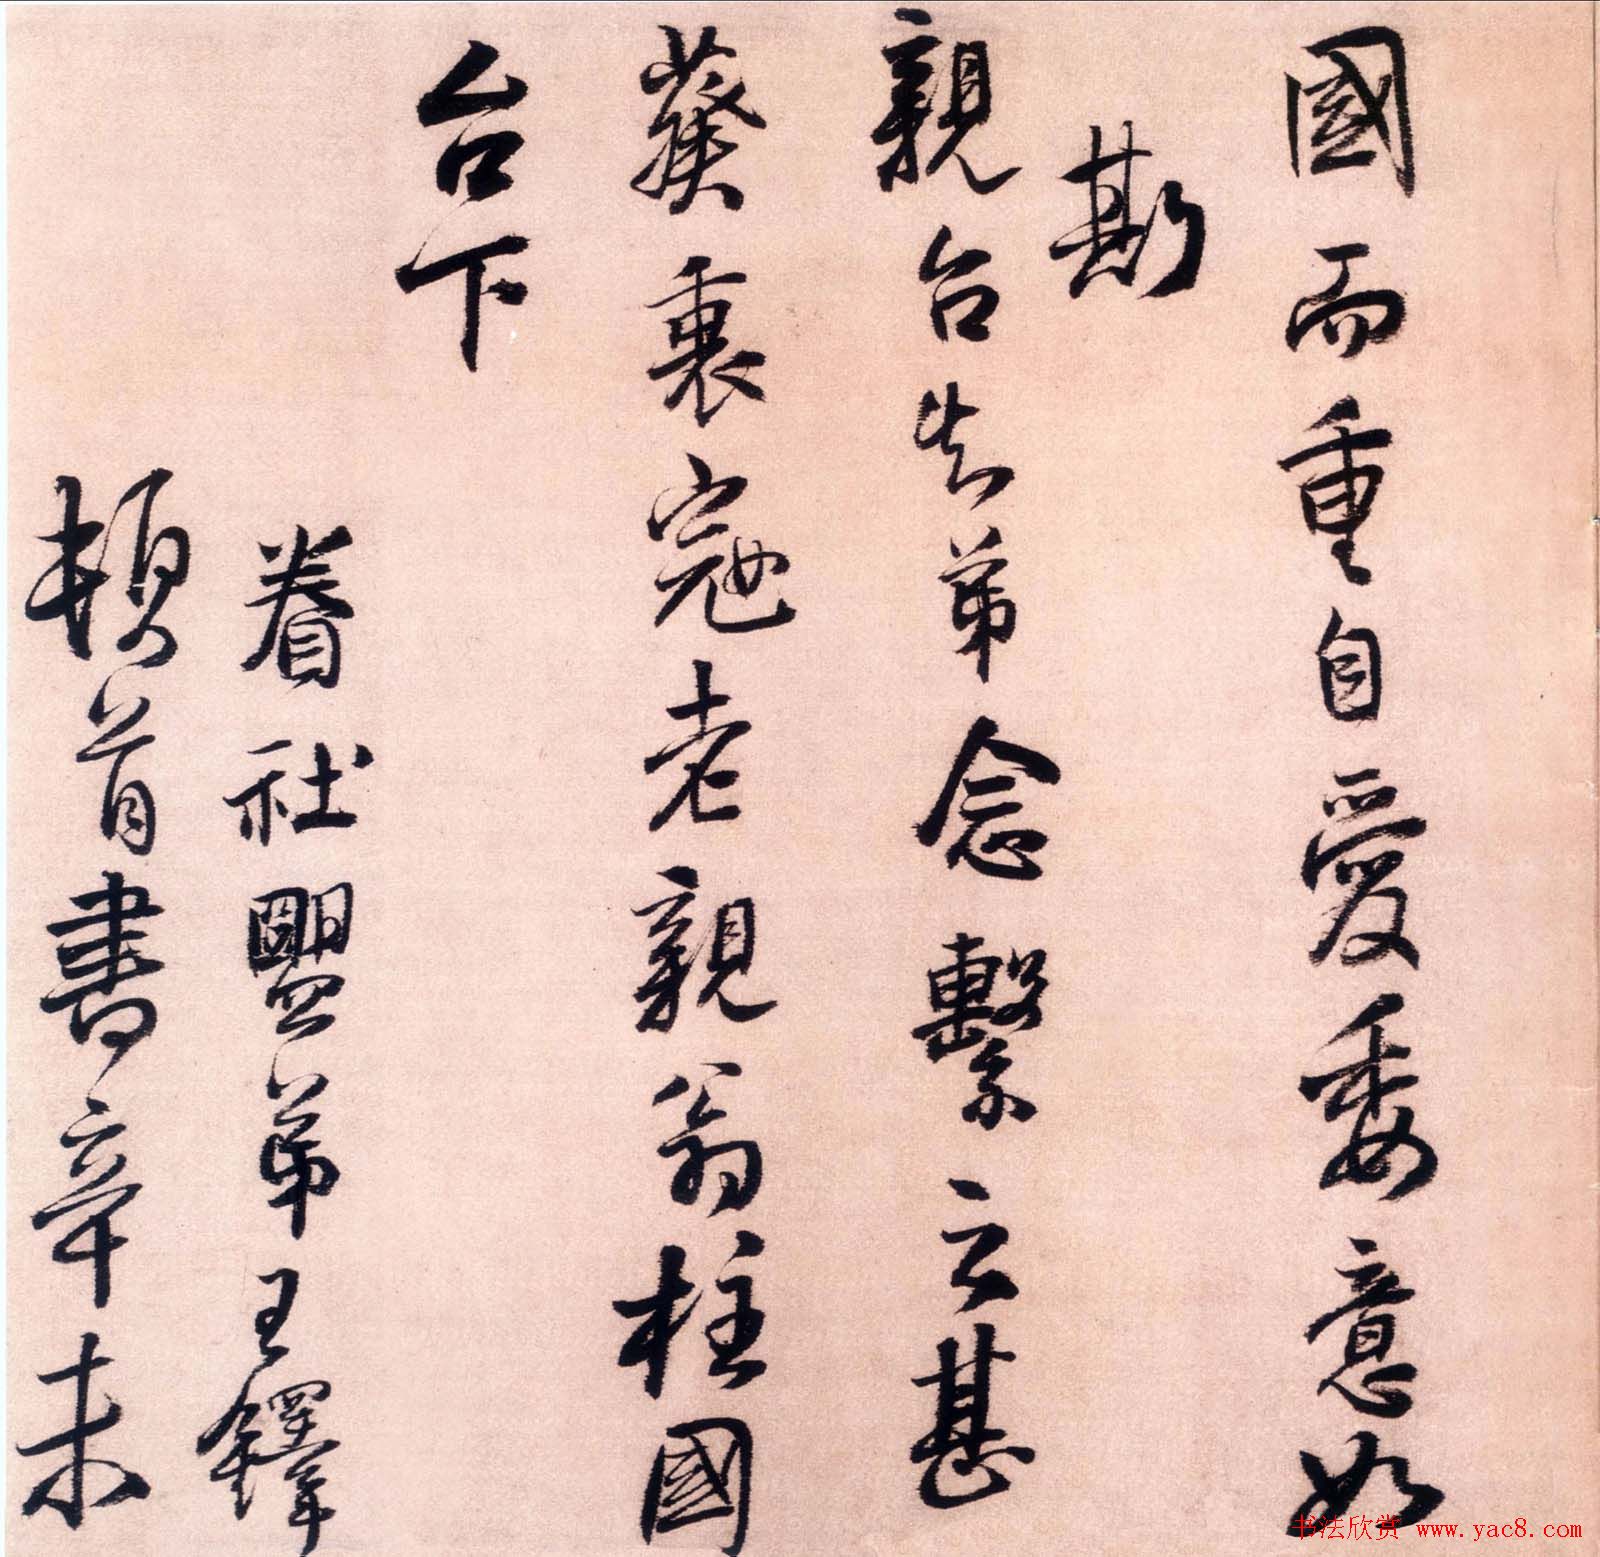 國而重自愛委意如
斯
親台知弟念繫云甚
葵裏寇老親翁柱國
台下
眷社盟弟王鐸
頓首書章未
书法欣赏 www.yac8.com